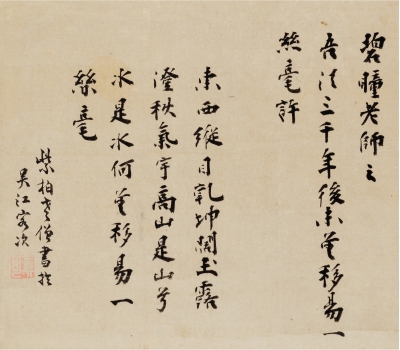 碧瞳老師云
吾法三千年後未嘗移易一
絲毫許
東西縱目乾坤闊玉露
澄秋氣宇高山是山兮
水是水何嘗移易一
絲毫
紫柏老僧書於
吳江客次